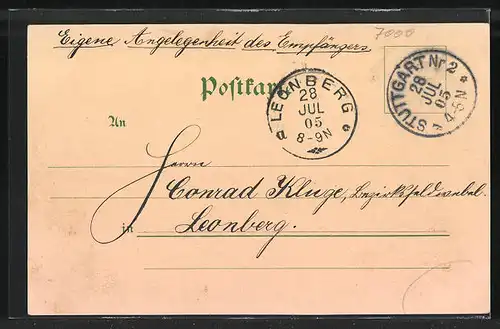 7000
Eigene Angelegenheit des Empfängers
Postkarte
STUTTGART Nr 2
28
JUL
05
4-5N
LEONBERG
28
JUL
05
8-9N
An
Herrn
Conrad Kluge, Bezirksfeldwebel.
in Leonberg.